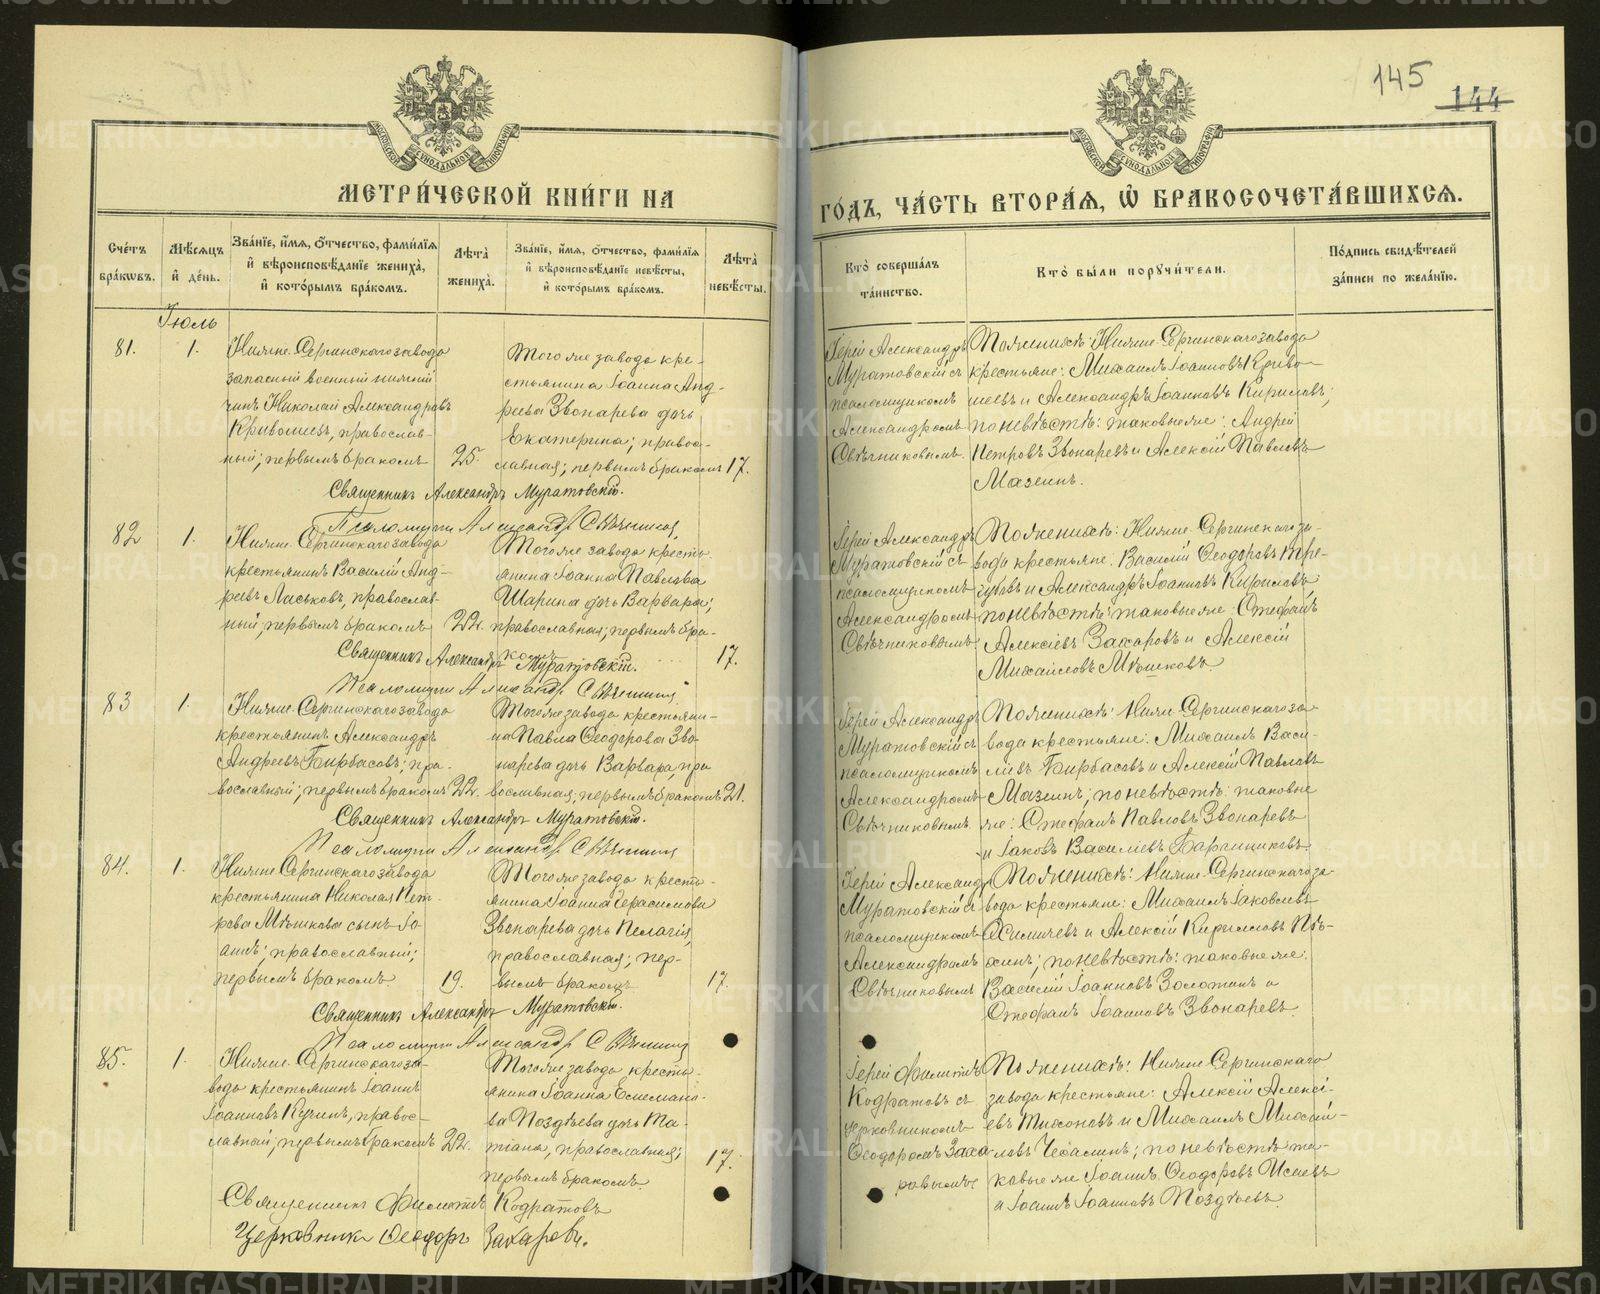 145
144
МОСКОВСКОЙ СУНОДАЛЬНОЙ ТИПОГРАФІИ
МОСКОВСКОЙ СУНОДАЛЬНОЙ ТИПОГРАФІИ
МЕТРИ́ЧЕСКОЙ КНИ́ГИ НА
ГО́ДЪ, ЧА́СТЬ ВТОРА́Я, Ѽ БРАКОСОЧЕТА́ВШИХСЯ.
Сче́тъ бра́кѡвъ.
Мѣ́сяцъ и҆ де́нь.
Зва́нїе, и҆́мя, ѻ҆́тчество, фами́лїя и҆ вѣроисповѣ́данїе жениха̀, и҆ кото́рымъ бра́комъ.
Лѣ́та̀ жениха̀.
Зва́нїе, и҆́мя, ѻ҆́тчество, фами́лїя и҆ вѣроисповѣ́данїе невѣ́сты, и҆ кото́рымъ бра́комъ.
Лѣ́та̀ невѣ́сты.
Кто̀ соверша́лъ та́инство.
Кто̀ бы́ли порꙋчи́тели.
По́дпись свидѣ́телей за́писи по жела́нїю.
Іюль
81.
1.
Нижне-Сергинскаго завода
запасный военный нижній
чинъ Николай Александровъ
Кривошеевъ, православ-
ный; первымъ бракомъ
25.
Того же завода кре-
стьянина Іоанна Анд-
реева Звонарева дочь
Екатерина; право-
славная; первымъ бракомъ
17.
Іерей Александръ
Муратовскій съ
псаломщикомъ
Александромъ
Свѣчниковымъ.
По женихѣ: Нижне-Сергинскаго завода
крестьяне: Михаилъ Іоанновъ Криво-
шеевъ и Александръ Іоанновъ Кириловъ;
по невѣстѣ: таковые же: Андрей
Петровъ Звонаревъ и Алексій Павловъ
Мазеинъ.
Священникъ Александръ Муратовскій.
Псаломщикъ Александръ Свѣчниковъ
82
1.
Нижне-Сергинскаго завода
крестьянинъ Василій Анд-
реевъ Ласьковъ, православ-
ный; первымъ бракомъ
22.
Того же завода кресть-
янина Іоанна Павлова
Шарина дочь Варвара;
православная; первымъ бра-
комъ
17.
Іерей Александръ
Муратовскій съ
псаломщикомъ
Александромъ
Свѣчниковымъ.
По женихѣ: Нижне-Сергинскаго за-
вода крестьяне: Василій Ѳеодоровъ Тре-
губовъ и Александръ Іоанновъ Кириловъ;
по невѣстѣ: таковые же: Стефанъ
Алексіевъ Захаровъ и Алексій
Михайловъ Мѣшковъ.
Священникъ Александръ Муратовскій.
Псаломщикъ Александръ Свѣчниковъ
83
1.
Нижне-Сергинскаго завода
крестьянинъ Александръ
Андреевъ Бирбасовъ; пра-
вославный; первымъ бракомъ
22.
Того же завода крестьяни-
на Павла Ѳеодорова Зво-
нарева дочь Варвара, пра
вославная; первымъ бракомъ
21.
Іерей Александръ
Муратовскій съ
псаломщикомъ
Александромъ
Свѣчниковымъ.
По женихѣ: Нижне-Сергинскаго за-
вода крестьяне: Михаилъ Васи-
ліевъ Бирбасовъ и Алексій Павловъ
Мазеинъ; по невѣстѣ: таковые
же: Стефанъ Павловъ Звонаревъ
и Іаковъ Василіевъ
Священникъ Александръ Муратовскій.
Псаломщикъ Александръ Свѣчниковъ
84.
1.
Нижне-Сергинскаго завода
крестьянина Николая Пет-
рова Мѣшкова сынъ Іо-
аннъ; православный;
первымъ бракомъ
19.
Того же завода кресть-
янина Іоанна Герасимова
Звонарева дочь Пелагія,
православная; пер-
вымъ бракомъ
17.
Іерей Александръ
Муратовскій съ
псаломщикомъ
Александромъ
Свѣчниковымъ
По женихѣ: Нижне-Сергинскаго за-
вода крестьяне: Михаилъ Іаковлевъ
и Алексій Кирилловъ
по невѣстѣ: таковые же:
Василій Іоанновъ Золотинъ и
Стефанъ Іоанновъ Звонаревъ.
Священникъ Александръ Муратовскій.
Псаломщикъ Александръ Свѣчниковъ
85.
1.
Нижне-Сергинскаго за-
вода крестьянинъ Іоаннъ
Іоанновъ Кучинъ, право-
славный; первымъ бракомъ
22.
Того же завода кресть-
янина Іоанна
Поздѣева дочь Та-
тіана, православная;
первымъ бракомъ.
17.
Іерей Филиппъ
Кодратовъ съ
церковникомъ
Ѳеодоромъ Заха-
ровымъ
По женихѣ: Нижне-Сергинскаго
завода крестьяне: Алексій Алексі-
евъ Тихоновъ и Михаилъ Михай-
ловъ Чебанинъ; по невѣстѣ та-
ковые же Іоаннъ Ѳеодоровъ Исаевъ
и Іоаннъ Іоанновъ Поздѣевъ.
Священникъ Филиппъ Кодратовъ
Церковникъ Ѳеодоръ Захаровъ.
METRIKI.GASO-URAL.RU